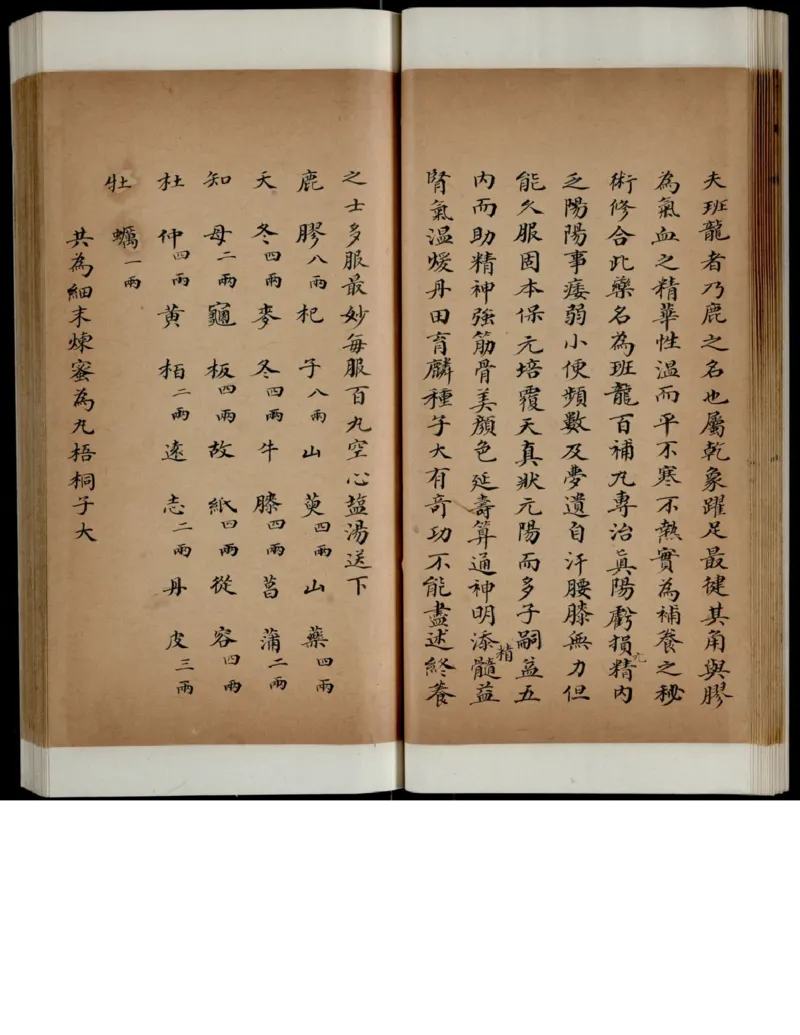 夫班龍者乃鹿之名也屬乾象躍足最徤其角與膠
為氣血之精華性溫而平不寒不熱實為補養之秘
術修合此藥名為班龍百補丸專治眞陽虧損精元內
乏陽陽事痿弱小便頻數及夢遺自汗腰膝無力但
能久服固本保元培覆天真狀元陽而多子嗣益五
內而助精神強筋骨美顏色延壽算通神明添精髓益
腎氣溫煖丹田育麟種子大有竒功不能盡述終養
之士多服最妙每服百丸空心塩湯送下
鹿膠八兩杞子八兩山萸四兩山藥四兩
天冬四兩麥冬四兩牛膝四兩菖蒲二兩
知母二兩龜板四兩故紙四兩從容四兩
杜仲四兩黃栢二兩遠志二兩丹皮三兩
牡蠣一兩
共為細末煉蜜為丸梧桐子大